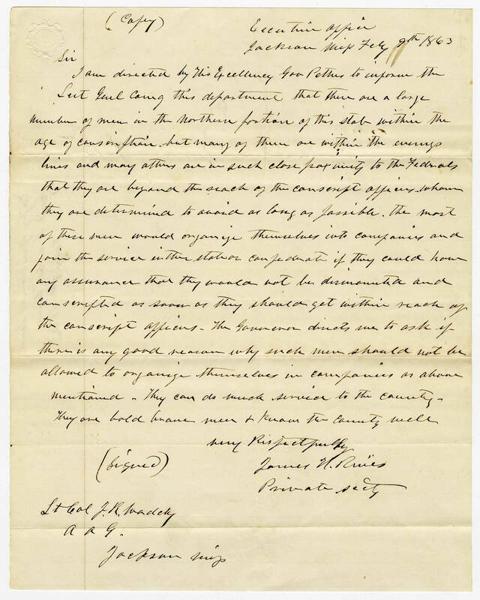 (Copy)
Executive office
Jackson Miss Feby 9th 1863
Sir
I am directed by His Excellency Gov Pettus to inform the
Leut Genl Comg this department that there are a large
number of men in the Northern portion of this state within the
age of conscription, but many of them are within the enemys
lines and many others are in such close proximity to the Federals
that they are beyond the reach of the conscript officers whom
they are determined to avoid as long as possible. The most
of these men would organize themselves into companies and
join the service either state or confederate if they could have
any assurance that they would not be dismounted and
conscripted as soon as they should get within reach of
the conscript officers - The Governor directs me to ask if
there is any good reason why such men should not be
allowed to organize themselves in companies as above
mentioned - They can do much service to the country -
They are bold brave men & know the country well
very Respectfully
(Signed) James H. Rives
Private secty
Lt Col J. R. Waddy
A A G.
Jackson Miss